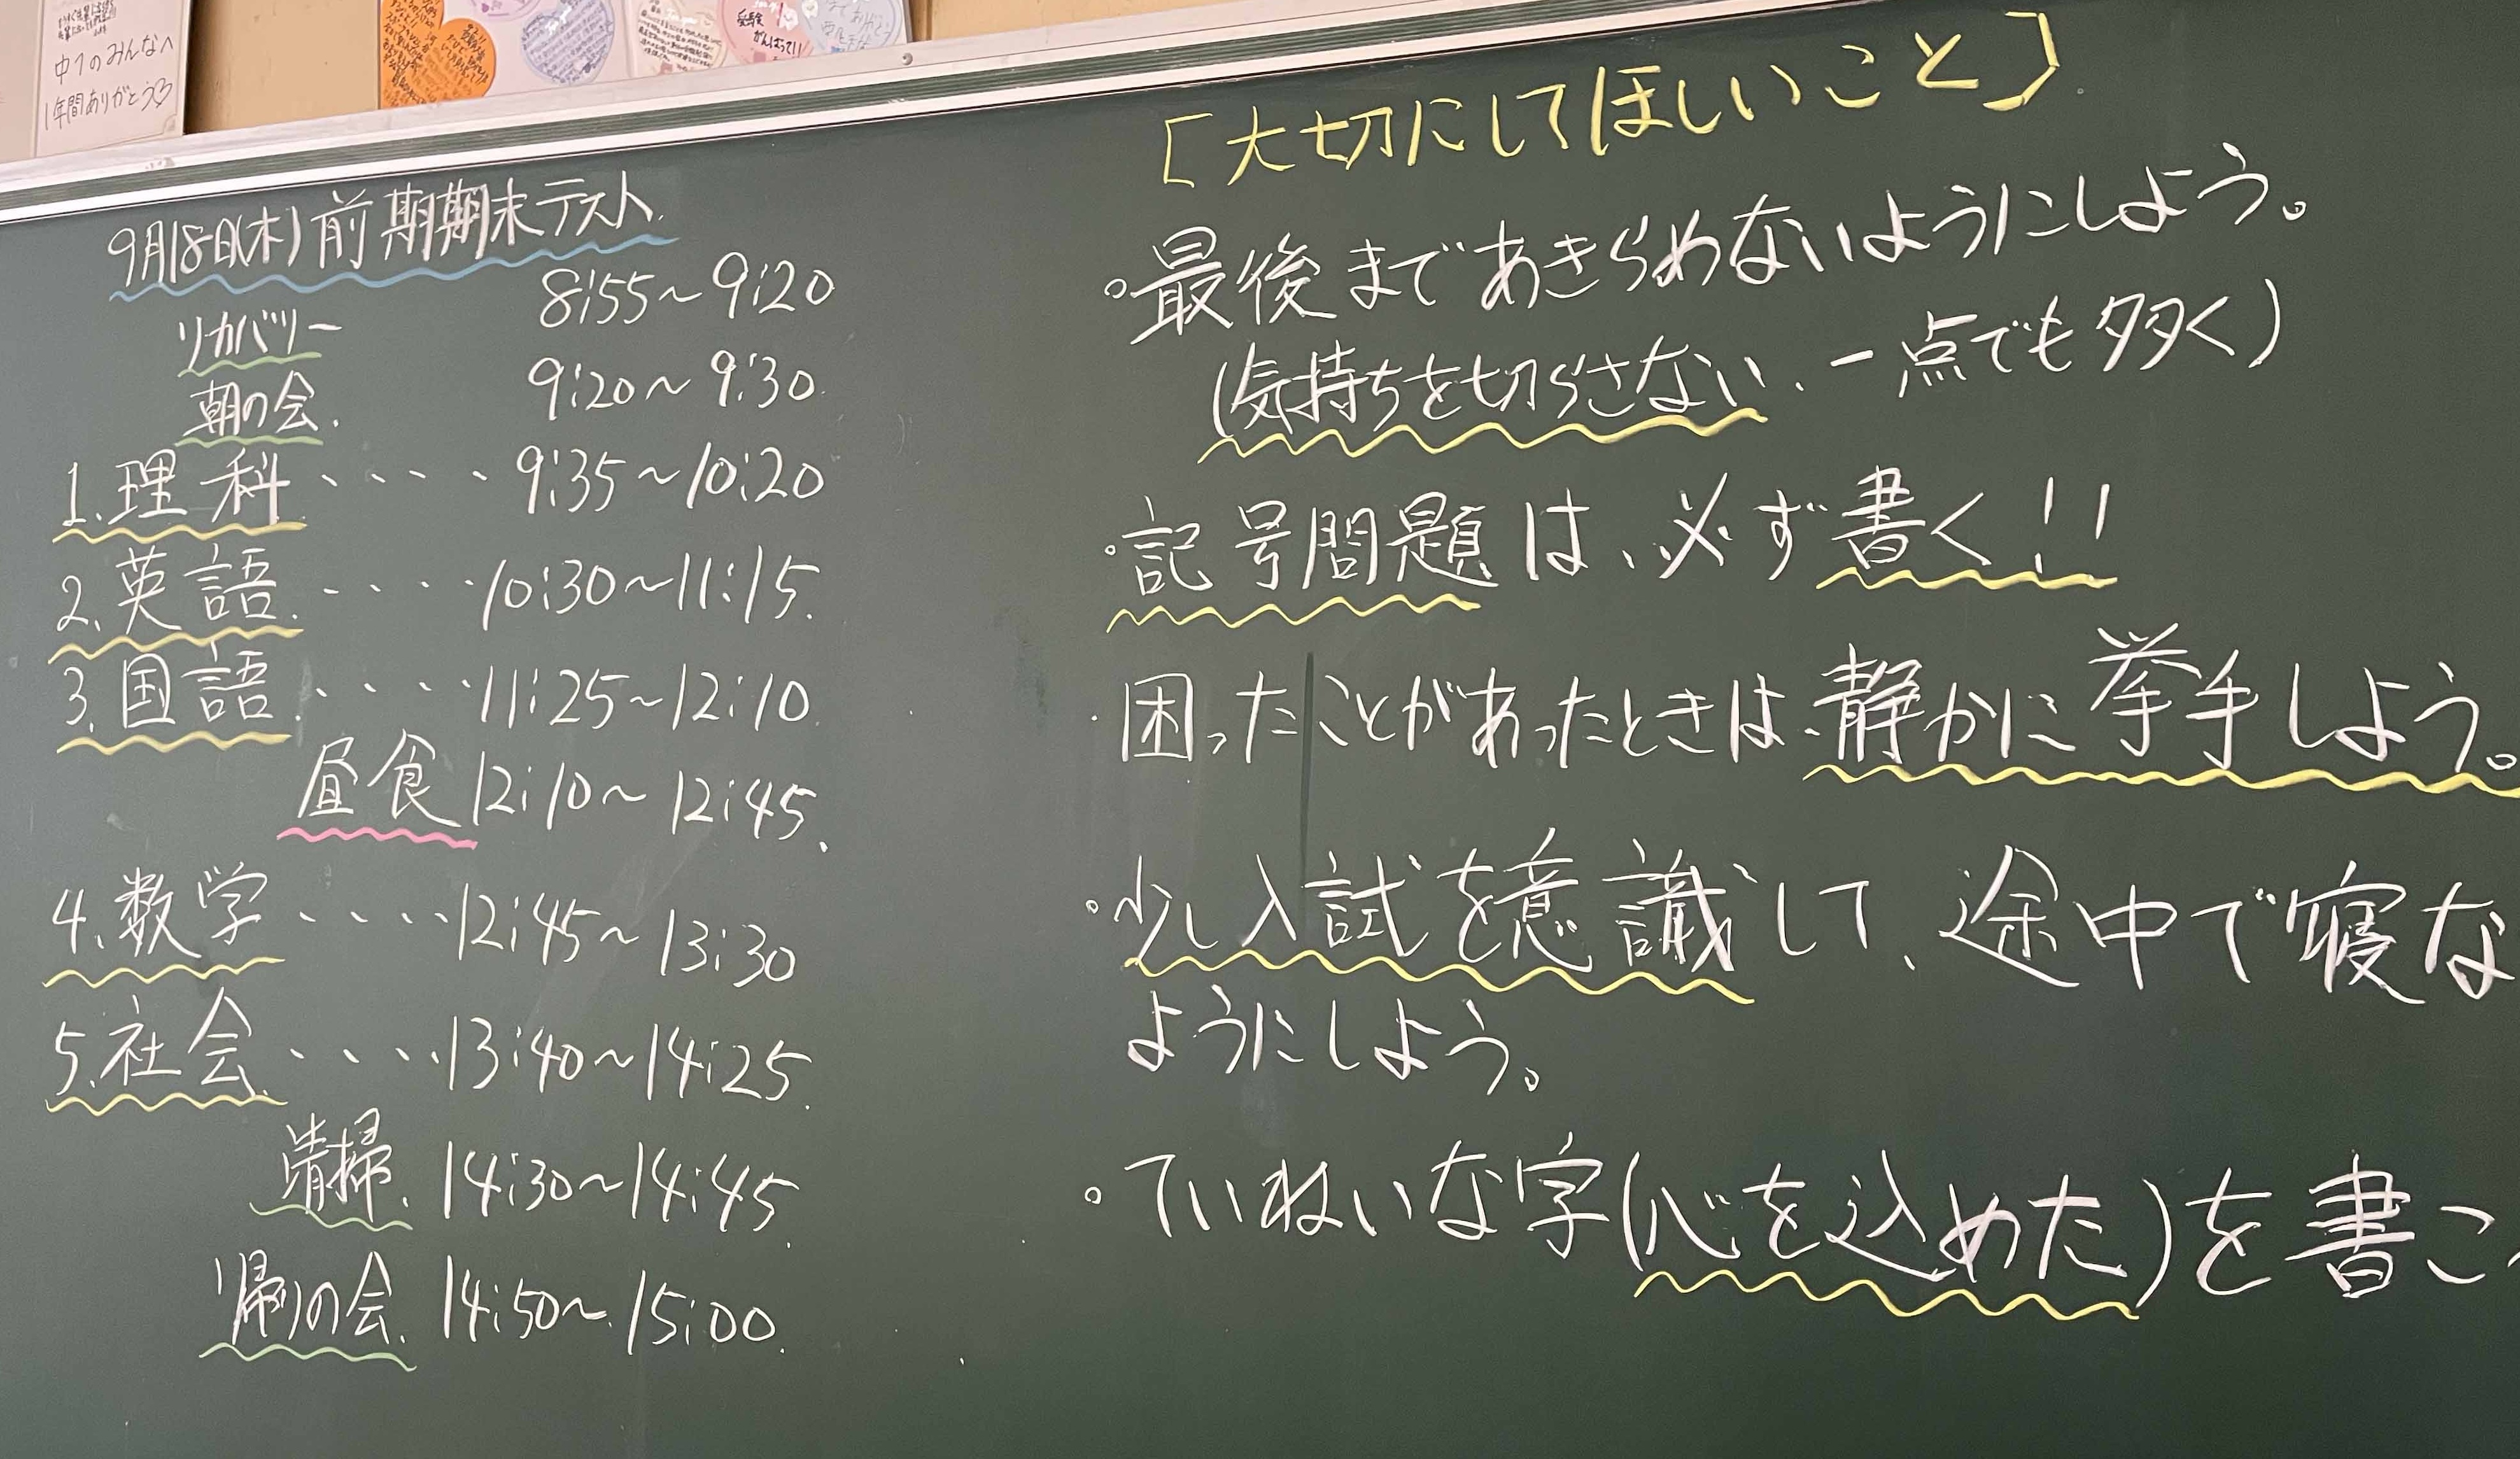 中1のみんなへ
1年間ありがとう♡
受験
がんばって!!
9月18日(木)前期期末テスト
リカバリー 8:55〜9:20
朝の会. 9:20〜9:30
1.理科・・・・9:35〜10:20
2.英語・・・・10:30〜11:15
3.国語・・・・11:25〜12:10
昼食 12:10〜12:45
4.数学・・・・12:45〜13:30
5.社会・・・・13:40〜14:25
清掃. 14:30〜14:45
帰りの会. 14:50〜15:00
[大切にしてほしいこと]
。最後まであきらめないようにしよう。
(気持ちを切らさない、一点でも多く)
・記号問題は、必ず書く!!
・困ったことがあったときは、静かに挙手しよう。
・少し入試を意識して、途中で寝な
ようにしよう。
。ていねいな字(心を込めた)を書こ